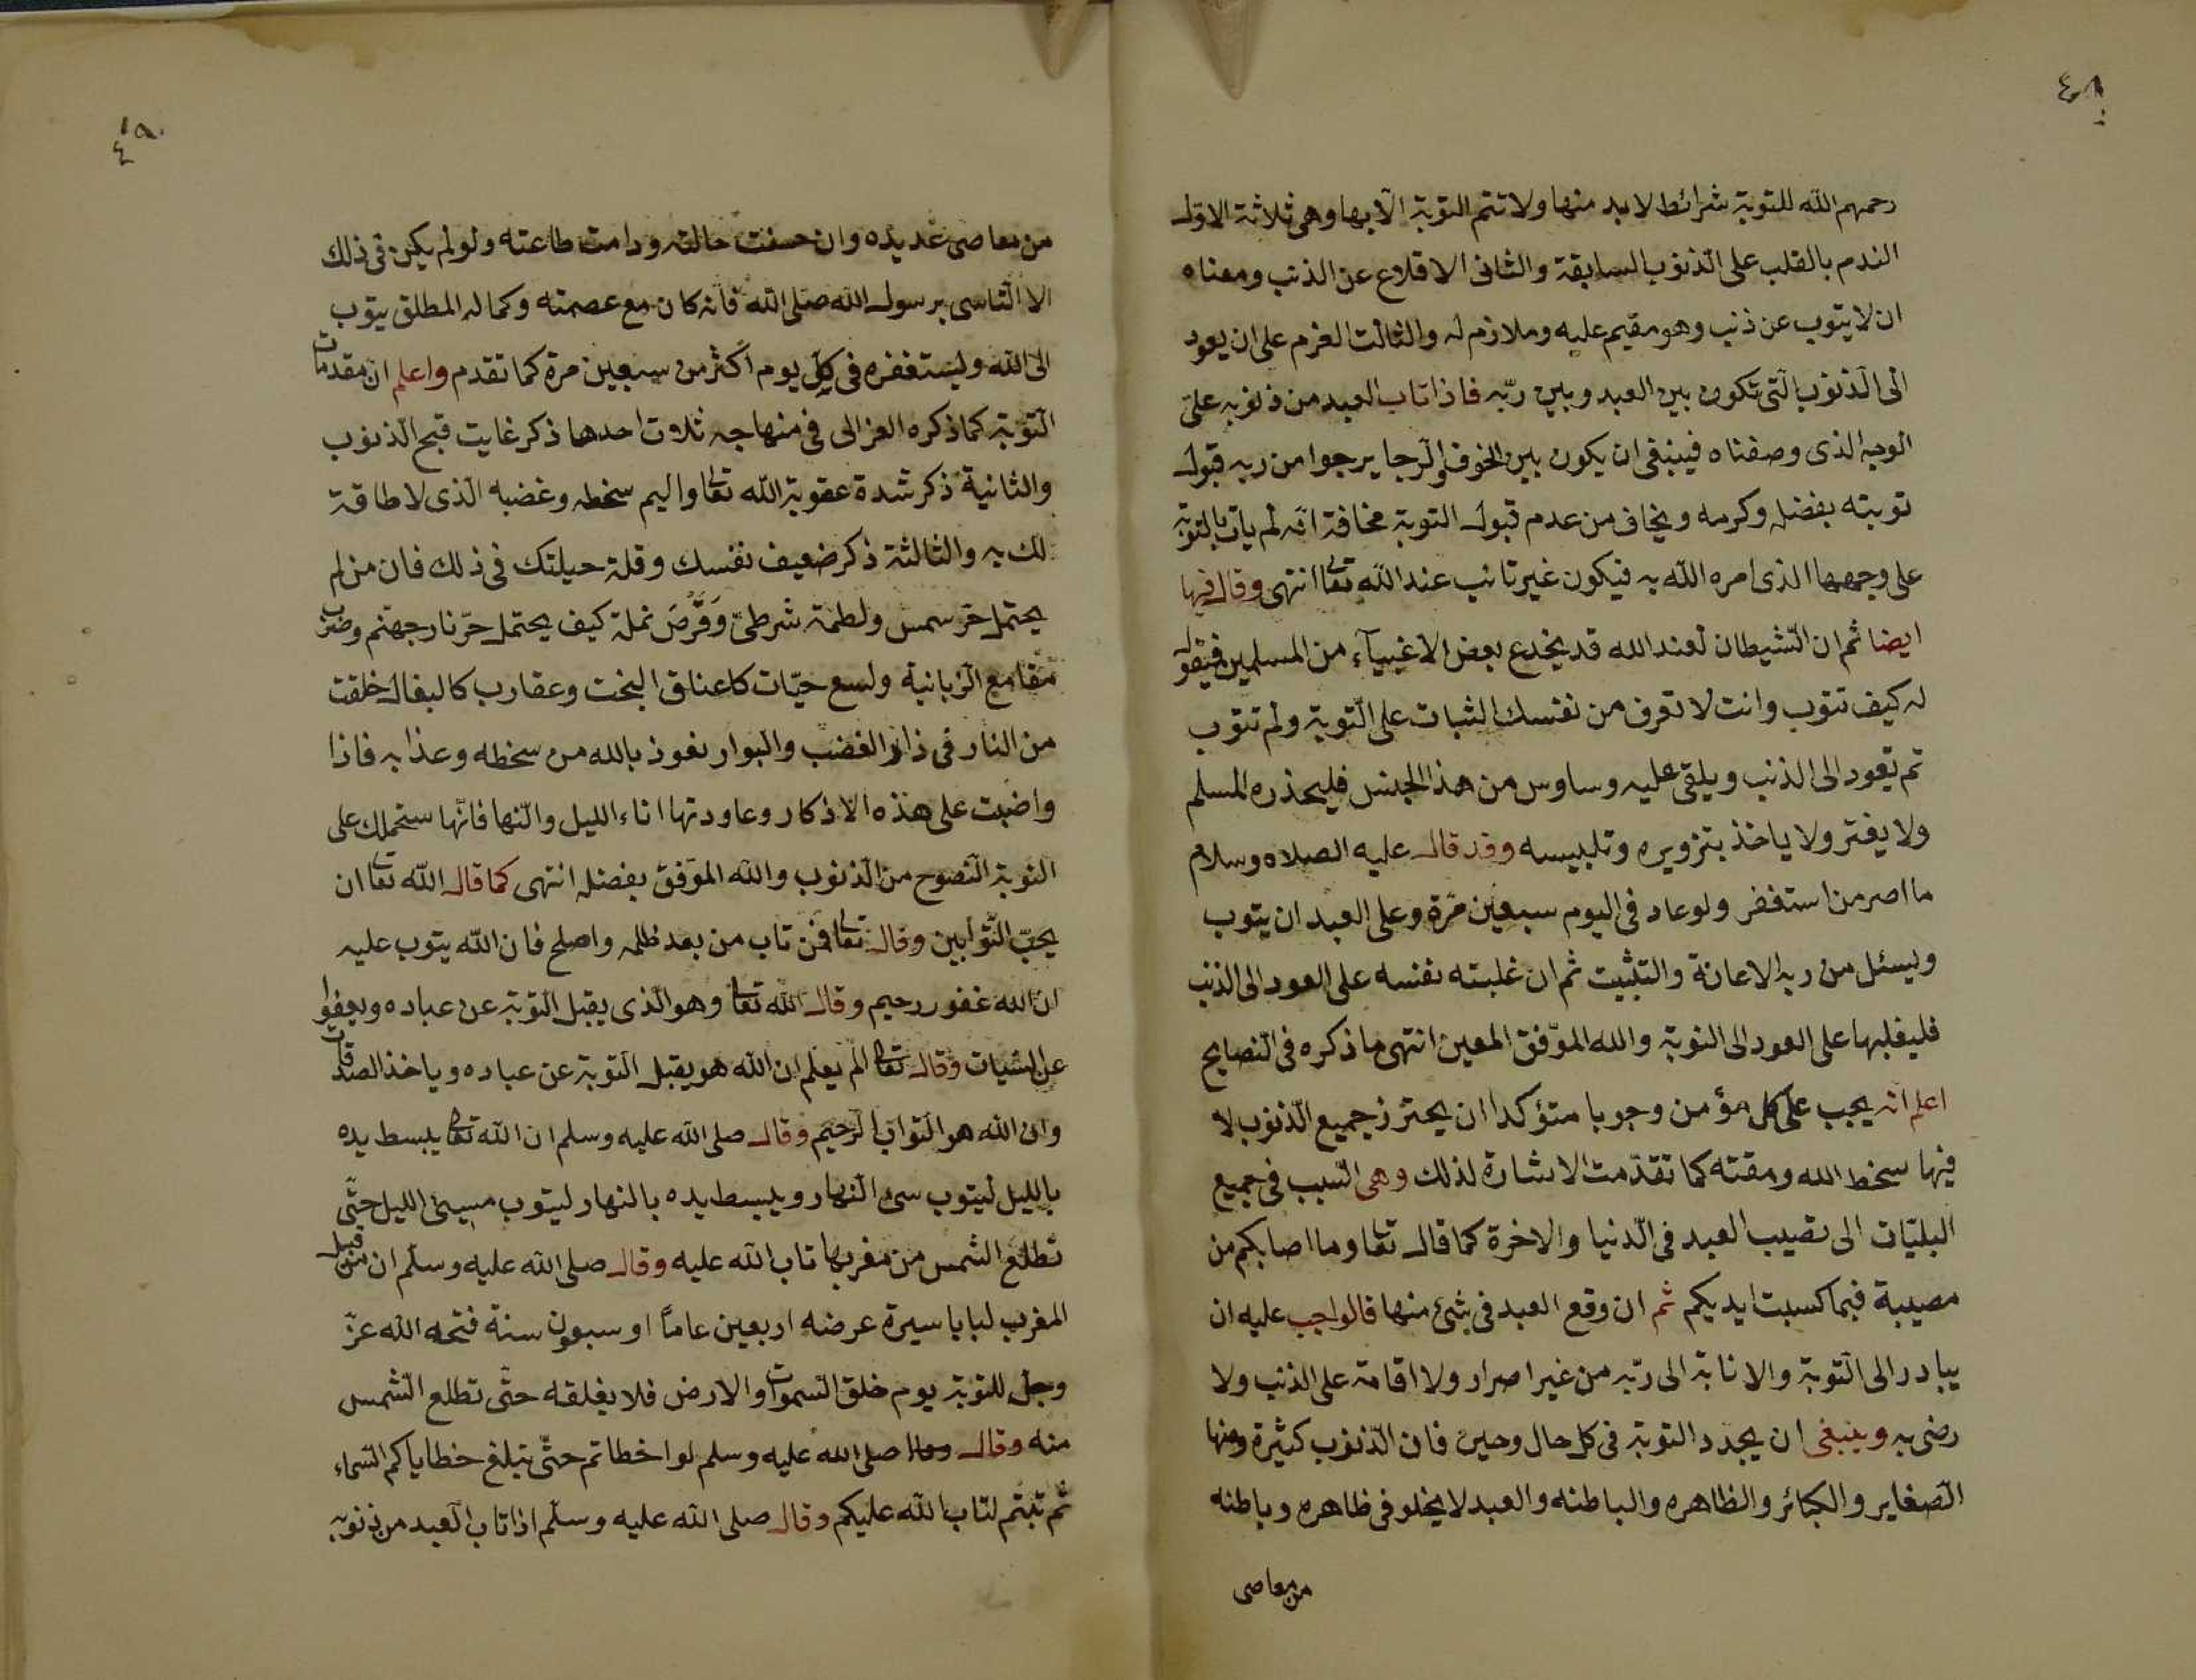 ٤٨
رحمهم الله للتوبة شرائط لابد منها ولا تتم التوبة الا بها وهى ثلاثة الاول
الندم بالقلب على الذنوب السابقة والثانى الاقلاع عن الذنب ومعناه
ان لا يتوب عن ذنب وهو مقيم عليه وملازم له والثالث العزم على ان يعود
الى الذنوب التى تكون بين العبد وبين ربّه فاذا تاب العبد من ذنوبه على
الوجه الذى وصفناه فينبغى ان يكون بين الخوف والرجا يرجوا من ربه قبول
توبته بفضله وكرمه ويخاف من عدم قبول التوبة مخافة انه لم يات بالتوبة
على وجهها الذى امره الله به فيكون غير تائب عند الله تعا انتهى وقال فيها
ايضا ثم ان الشيطان لعنه الله قد يخدع بعض الاغبيآء من المسلمين فيقول
له كيف تتوب وانت لا تعرف من نفسك الثبات على التوبة ولم تتوب
ثم تعود الى الذنب ويلقى عليه وساوس من هذا الجنس فليحذره المسلم
ولا يغتر ولا ياخذ بتزويره وتلبيسه وقد قال عليه الصلاه وسلام
ما اصر من استغفر ولو عاد فى اليوم سبعين مرة وعلى العبد ان يتوب
ويسئل من ربه الاعانة والتثبيت ثم ان غلبته نفسه على العود الى الذنب
فليغلبها على العود الى التوبة والله الموّفق المعين انتهى ما ذكره فى النصايح
اعلم انه يجب على كل مؤمن وجوبا متؤكدا ان يحترز جميع الذنوب لا
فيها سخط الله ومقته كما تقدّمت الاشارة لذلك وهى السبب فى جميع
البليّات الى تصيب العبد فى الدنيا والاخرة كما قال تعا وما اصابكم من
مصيبة فبما كسبت ايديكم ثم ان وقع العبد فى شئ منها فالواجب عليه ان
يبادر الى التوبة والانابة الى ربّه من غير اصرار ولا اقامة على الذنب ولا
رضى به وينبغى ان يجدد التوبة فى كل حال وحين فان الذنوب كثيرة ومنها
الصغاير والكبائر والظاهره والباطنه والعبد لا يخلو فى ظاهره وباطنه
من معاصى
٤٩
من معاصى عديده وان حسنت حالته ودامت طاعته ولو لم يكن فى ذلك
الا التاسى برسول الله صلى الله فانه كان مع عصمته وكماله المطلق يتوب
الى الله ويستغفره فى كل يوم اكثر من سبعين مرة كما تقدم واعلم ان مقدمات
التوبة كما ذكره الغزالى فى منهاجه ثلاث احدها ذكر غايت قبح الذنوب
والثانية ذكر شدة عقوبة الله تعا واليم سخطه وغضبه الذى لا طاقة
لك به والثالثة ذكر ضعيف نفسك وقلة حيلتك فى ذلك فان من لم
يحتمل حر سمس ولطمة شرطىّ وَقَرْصَ نملة كيف يحتمل حرّ نار جهنم وضرب
مقامع الزبانية ولسع حيّات كاعناق البخت وعقارب كالبغال خلقت
من النار فى دار الغضب والبوار نعوذ بالله من سخطه وعذابه فاذا
واضبت على هذه الاذكار وعاودتها اناء الليل والنها فانها ستحملك على
التوبة النصوح من الذنوب والله الموّفق بفضله انتهى كما قال الله تعا ان
يحبّ التوابين وقال تعا فمن تاب من بعد ظلمه واصلح فان الله يتوب عليه
ان الله غفور رحيم وقال الله تعا وهو الذى يقبل التوبة عن عباده ويعفوا
عن السّيات وقال تعا الم يعلم ان الله هو يقبل التوبة عن عباده وياخذ الصدقات
وان الله هو التواب الرحيم وقال صلى الله عليه وسلم ان الله تعا يبسط يده
بالليل ليتوب سىء النهار ويبسط يده بالنهار ليتوب مسيئ الليل حتّى
تطلع الشمس من مغربها تاب الله عليه وقال صلى الله عليه وسلم ان من قبل
المغرب لبابا سيرة عرضه اربعين عاماً او سبعون سنة فتحه الله عزّ
وجل للتوبة يوم خلق السموات والارض فلا يغلقه حتّى تطلع الشمس
منه وقال صلى الله عليه وسلم لو اخطاتم حتّى تبلغ خطاياكم السماء
ثم تبتم لتاب الله عليكم وقال صلى الله عليه وسلم اذا تاب العبد من ذنوبه